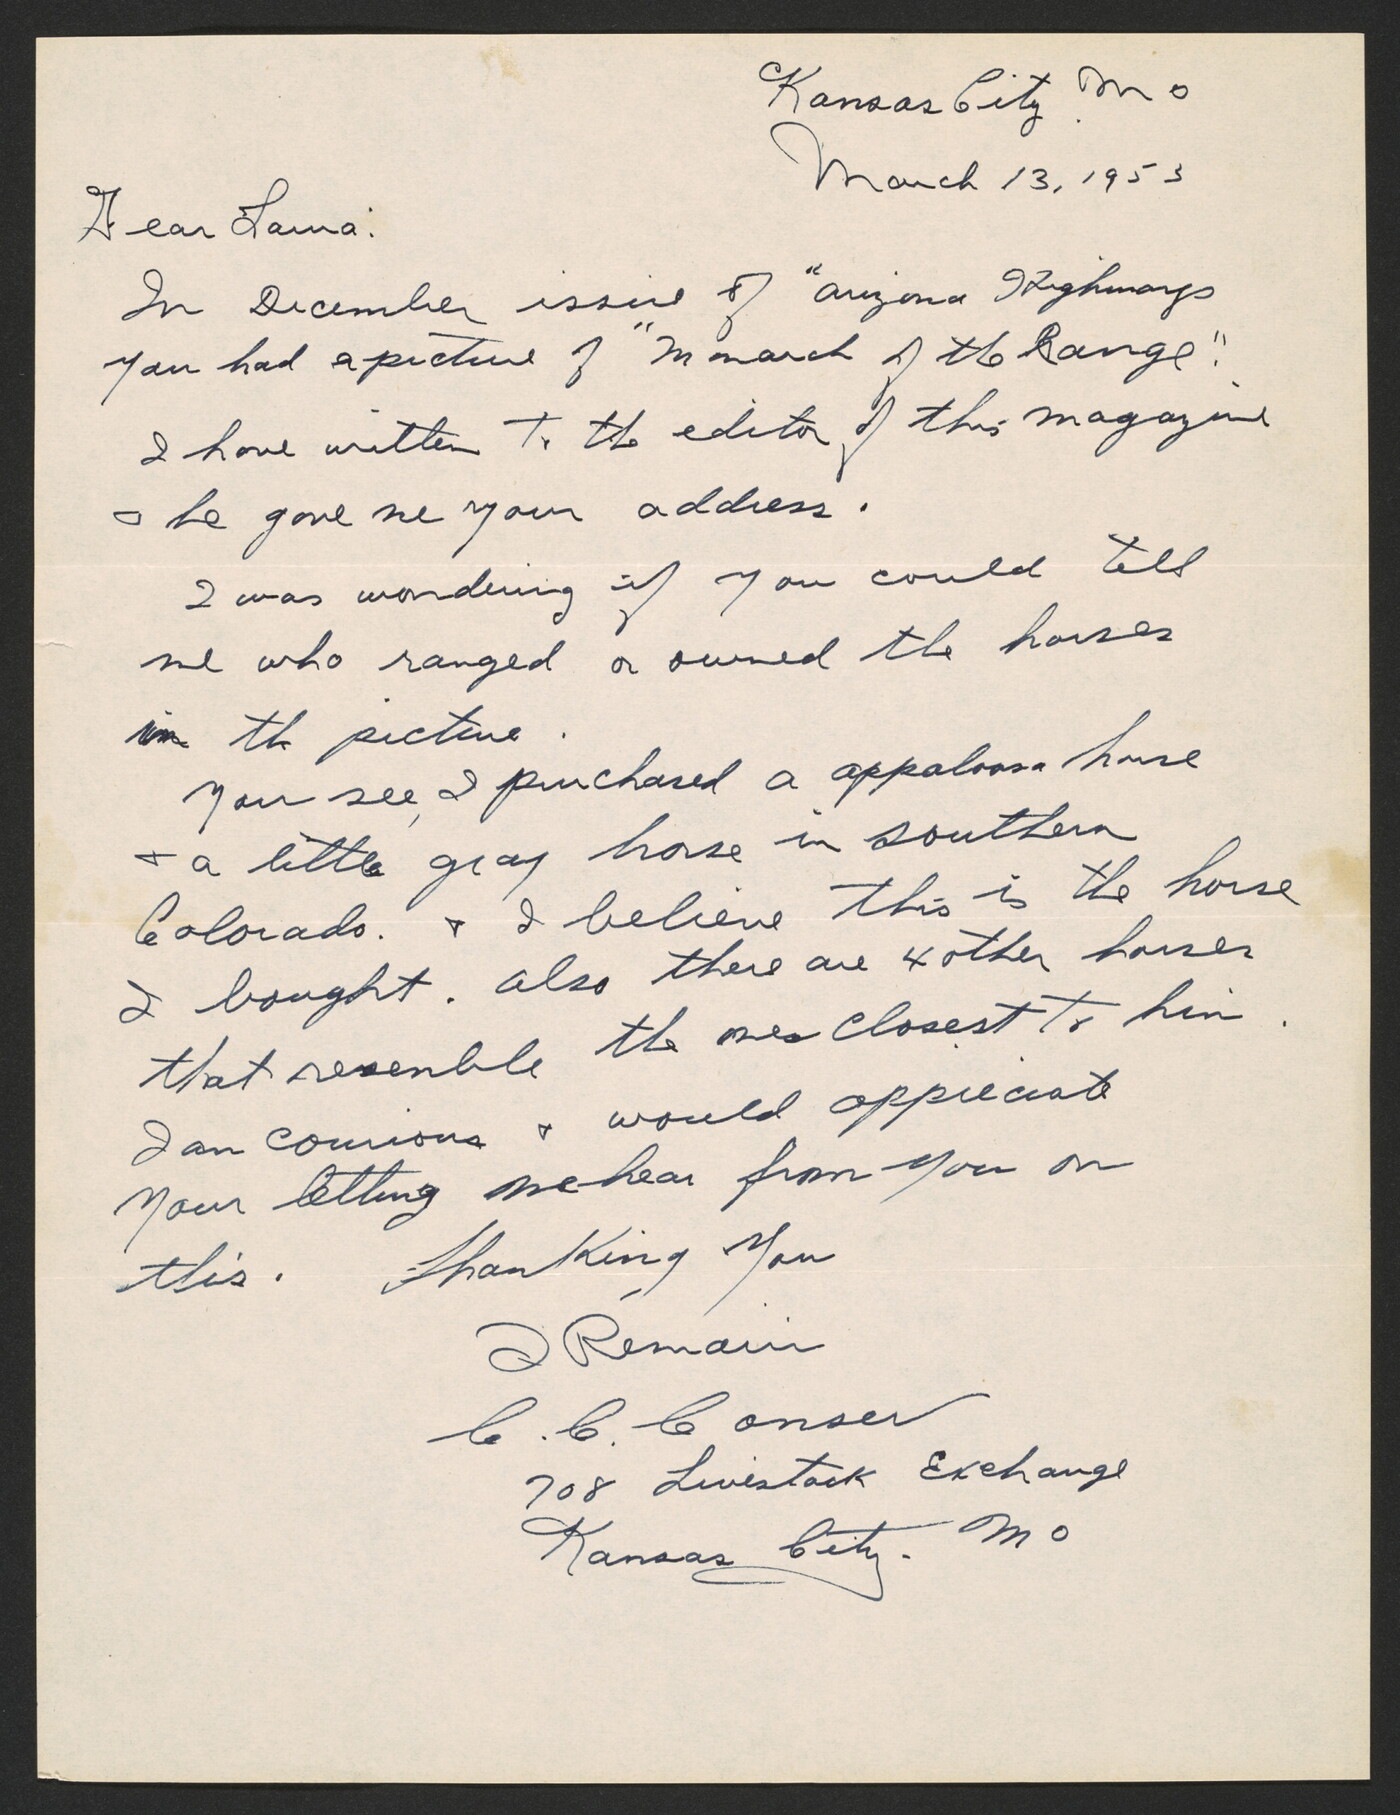 Kansas City Mo
March 13, 1953
Dear Laura:
In December issue of "Arizona Highways
you had a picture of "Monarch of the Range".
I have written to the editor of this magazine
& he gave me your address.
I was wondering if you could tell
me who ranged or owned the horses
in the picture.
You see, I purchased a appaloosa horse
& a little gray horse in southern
Colorado. & I believe this is the horse
I bought. Also there are 4 other horses
that resemble the ones closest to him.
I am courious & would appreciate
your letting me hear from you on
this. Thanking You
I Remain
C. C. Conser
708 Livestock Exchange
Kansas City. Mo